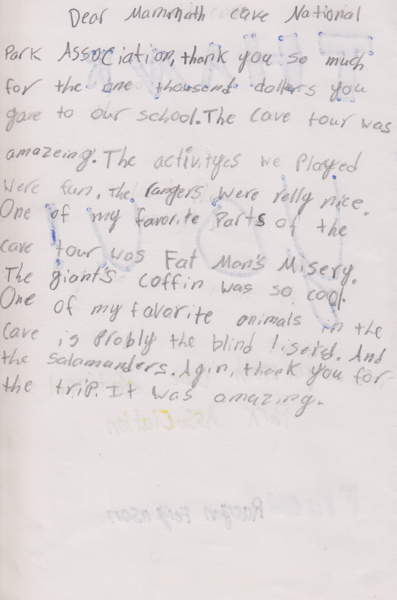 Dear Mammoth cave National
Park Association, thank you so much
for the one thousand dollers you
gave to our school. The cave tour was
amazeing. The activityes we Played
were fun, the rangers were relly nice.
One of my favorite Parts of the
cave tour was Fat Man's Misery.
The giant's coffin was so cool.
One of my favorite animals in the
cave is probly the blind liserd. And
the salamanders. Agin, thank you for
the trip. It was amazing.